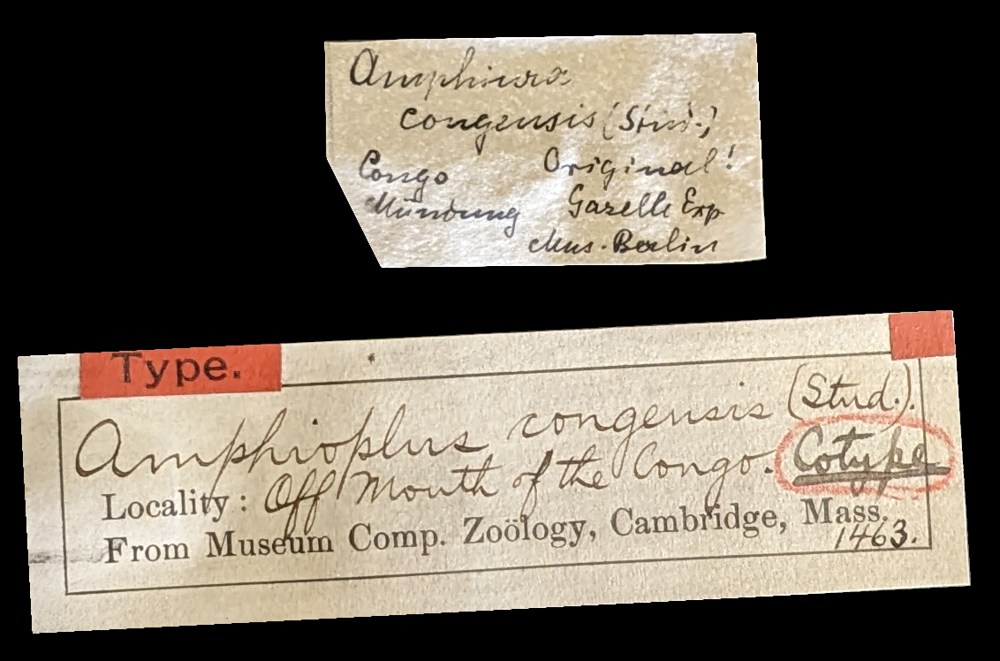 Amphiura
congensis (Stud.)
Congo Original!
Mündung Gazelle Exp
Mus. Berlin
Type.
Amphioplus congensis (Stud.).
Locality: Off Mouth of the Congo. Cotype
From Museum Comp. Zoölogy, Cambridge, Mass.
1463.